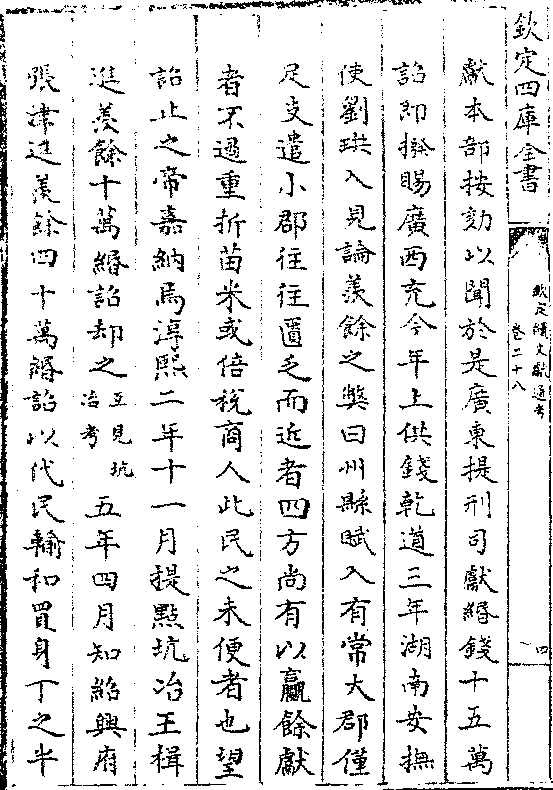 欽定四庫全書
欽定續文獻通考
卷二十八
四
獻本部按劾以聞於是廣東提刑司獻緡錢十五萬
詔即撥賜廣西充今年上供錢乾道三年湖南安撫
使劉珙入見論羨餘之弊曰州縣賦入有常大郡僅
足支遣小郡往往匱乏而近者四方尚有以羸餘獻
者不過重折苗米或倍稅商人此民之未便者也望
詔止之帝嘉納焉淳熙二年十一月提點坑冶王楫
進羨餘十萬緡詔却之互見坑冶考五年四月知紹興府
張津進羨餘四十萬緡詔以代民輸和買身丁之半